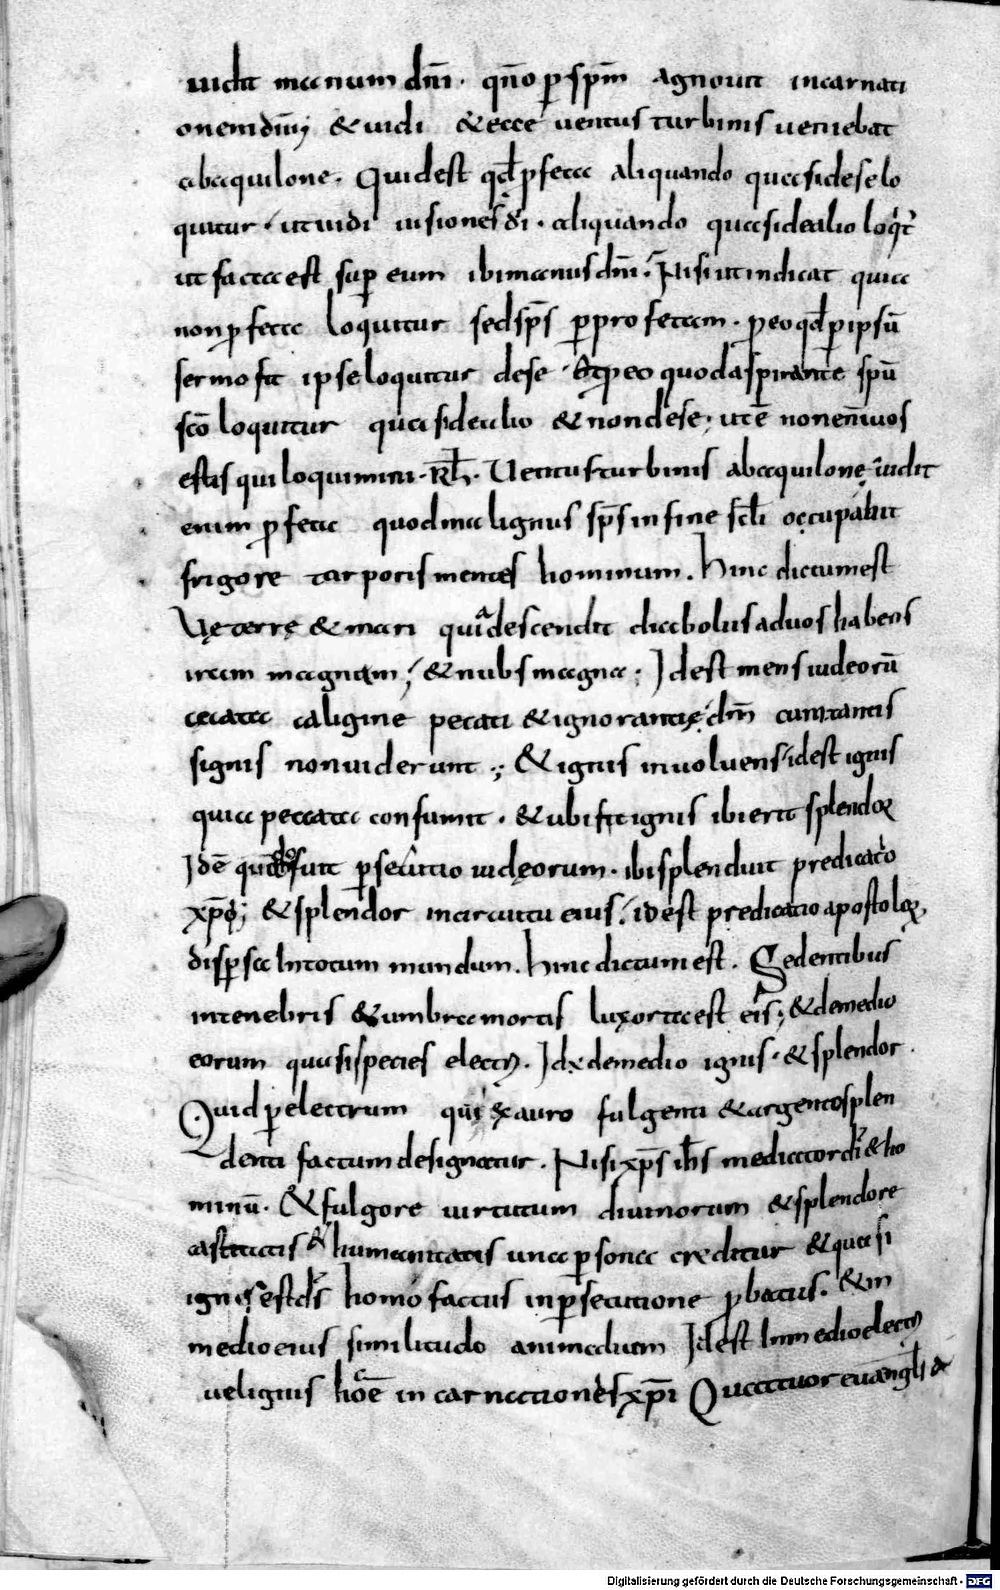 uidit manum dñi· qño p spm̄ agnouit incarnati
onem dñi; & uidi & ecce uentus turbinis ueniebat
ab aquilone· Quid est qđ p̱feta aliquando quasi de se lo
quitur· ut uidi uisiones dī· aliquando quasi de alio loqr̄
ut facta est sup eum ibi manus dñi· Nisi ut indicat quia
non p̱feta loquitur sed sp̄s p profetam· p eo qđ p ipsū
sermo fit ipse loquitur de se· & p eo quod aspirante spū
scō loquitur quasi de alio & non de se; ut ē non eñ uos
estis qui loquimini· R̄· Uentus turbinis ab aquilonę· uidit
enim p̱feta quod malignus sp̄s in fine scłi occupabit
frigore torporis mentes hominum. hinc dictum est
Vę terrę & mari quia descendit diabolus ad uos habens
iram magnam; & nubs magna; Id est mens iudeorū
cecata caligine peccati & ignorantię dñm cum tantis
signis non uiderunt; & ignis inuoluens id est ignis
quia peccata consumit· & ubi fit ignis ibi erit splendor
Id ē fuit psecutio iudęorum· ibi splenduit predicatio
xp̄i; & splendor in circuitu eius· id est predicatio apostolorꝝ
disp̱sa In totum mundum. hinc dictum est. Sedentibus
in tenebris & umbra mortis lux orta est eis; & de medio
eorum quasi species electri. Id ÷ de medio ignis· & splendor·
Quid p electrum qui ex auro fulgenti & argento splen
denti factum designatur. Nisi xp̄s ihs mediator dī & ho
minū· & fulgore uirtutum diuinorum & splendore
castitatis & humanitatis una psona creditur & quasi
ignis est ds̄ homo factus in psecutione p̱batus· & in
medio eius similitudo animalium Id est In medio electri
uel ignis hoc ē in carnationes xp̄i Quattuor euangłi a